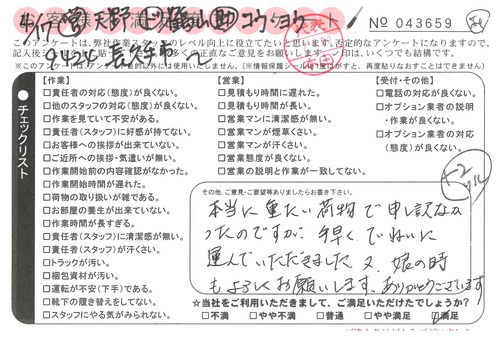 4/17 天野
№ 043659
このアンケートは、弊社作業スタッフのレベル向上に役立てたいと思います。否定的なアンケートになりますので、
【作業】
□責任者(スタッフ)の対応(態度)が良くない。
□他のスタッフの対応(態度)が良くない。
□作業を見ていて不安がある。
□責任者(スタッフ)に好感が持てない。
□お客様への挨拶が出来ていない。
□ご近所への挨拶・気遣いが無い。
□作業開始前の内容確認がなかった。
□作業開始時間が遅れた。
□荷物の取り扱いが雑である。
□お部屋の養生が出来ていない。
□作業時間が長すぎる。
□責任者(スタッフ)に清潔感が無い。
□責任者(スタッフ)が汗くさい。
□トラックが汚い。
□梱包資材が汚い。
□運転が不安(下手)である。
□靴下の履き替えをしてない。
□スタッフにやる気がみられない。
【営業】
□見積もり時間に遅れた。
□見積もり時間が長い。
□営業マンに清潔感が無い。
□営業マンが煙草くさい。
□営業マンが汗くさい。
□営業態度が良くない。
□営業の説明と作業が一致してない。
【受付・その他】
□電話の対応が良くない。
□オプション業者の説明
・作業が良くない。
□オプション業者の対応
(態度)が良くない。
チェックリスト
その他、ご意見・ご要望等ありましたらお書き下さい。
本当に重たい荷物で申し訳なか
ったのですが、手早くていねいに
運んでいただきました。又、娘の時
もよろしくお願いします。ありがとうございます
★当社をご利用いただきまして、ご満足いただけたでしょうか?
□不満 □やや不満 □普通 □やや満足 □満足